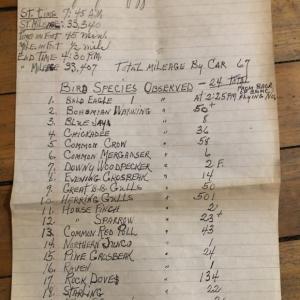 ST. TIME 7:45 A.M.
ST. MILEAGE: 33,340
TIME ON FEET 45 MIN.
MILE ON FEET ½ MILE
END TIME 4:30 P.M.
" MILEAGE 33,407 TOTAL MILEAGE BY CAR 67
BIRD SPECIES OBSERVED — 24 TOTAL
1. BALD EAGLE 1 " AT 2:25 P.M. FLYING
2. BOHEMIAN WAXWING " 50+
3. BLUE JAYS " 8
4. CHICKADEE " 36
5. COMMON CROW " 58
6. COMMON MERGANSER " 6
7. DOWNY WOODPECKER " 2 F.
8. EVENING GROSBEAK " 14
9. GREAT B.B. GULLS " 50
10. HERRING GULLS " 501
11. HOUSE FINCH " 2
12. " SPARROW " 23+
13. COMMON RED POLL " 43
14. NORTHERN JUNCO " 1
15. PINE GROSBEAK " 24
16. RAVEN " 1
17. ROCK DOVES " 134
18. STARLING " 22